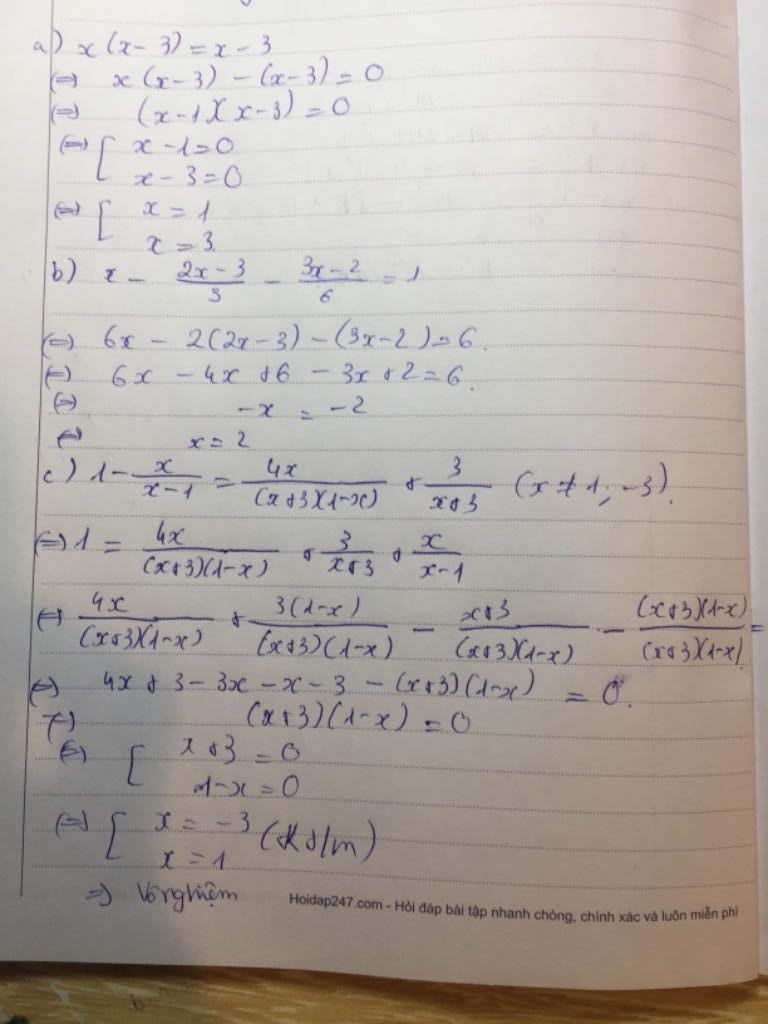 a) x(x-3) = x-3
(=) x(x-3) - (x-3) = 0
(=) (x-1)(x-3) = 0
(=) [ x-1=0
x-3=0
(=) [ x = 1
x = 3
b) x - \frac{2x-3}{3} - \frac{3x-2}{6} = 1
(=) 6x - 2(2x-3) - (3x-2) = 6.
(=) 6x - 4x + 6 - 3x + 2 = 6.
(=) -x = -2
(=) x = 2
c) 1 - \frac{x}{x-1} = \frac{4x}{(x+3)(1-x)} + \frac{3}{x+3} (x ≠ 1; -3).
(=) 1 = \frac{4x}{(x+3)(1-x)} + \frac{3}{x+3} + \frac{x}{x-1}
(=) \frac{4x}{(x+3)(1-x)} + \frac{3(1-x)}{(x+3)(1-x)} - \frac{x+3}{(x+3)(1-x)} - \frac{(x+3)(1-x)}{(x+3)(1-x)} =
(=) 4x + 3 - 3x - x - 3 - (x+3)(1-x) = 0.
(=) (x+3)(1-x) = 0
(=) [ x+3 = 0
1-x = 0
(=) [ x = -3 (Ktm)
x = 1
=) Vô nghiệm
Hoidap247.com - Hỏi đáp bài tập nhanh chóng, chính xác và luôn miễn phí